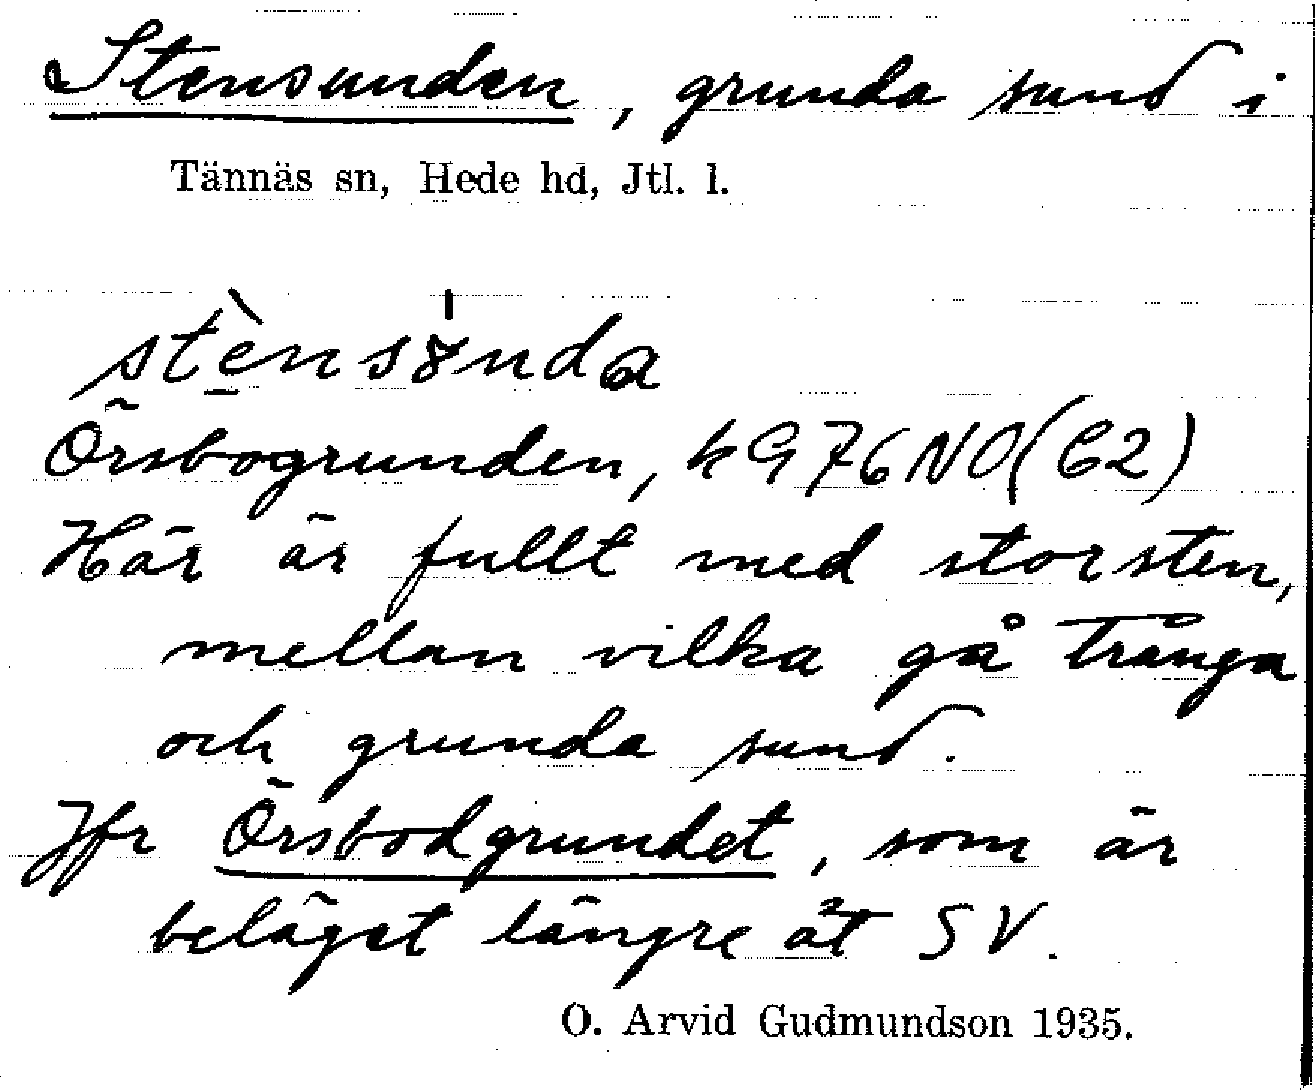 Stensunden, grunda sund i
Tännäs sn, Hede hd, Jtl. l.
Örsbogrunden, kG76NO(C2)
Här är fullt med storsten,
mellan vilka gå trånga
och grunda sund.
Jfr Örsbodgrundet, som är
beläget längre åt SV.
O. Arvid Gudmundson 1935.